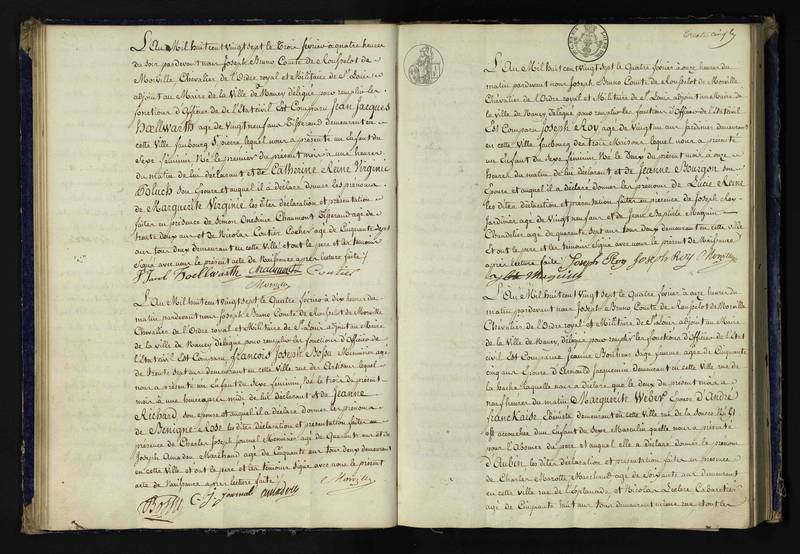 L'An Mil huit cent vingt sept le Trois février à quatre heures
du soir pardevant nous Joseph Bruno Comte de Rousselot de
Morville Chevalier de l'Ordre royal et Militaire de St Louis
adjoint au Maire de la Ville de Nancy délégué pour remplir les
fonctions d'Officier de l'Etat civil Est Comparu Jean Jacques
Doellwarth agé de vingt neuf ans Tisserand demeurant en
cette Ville faubourg St pierre lequel nous a présenté un Enfant du
Sexe féminin Né le premier du présent mois à une heure
du matin de lui déclarant et de Catherine Reine Virginie
son Epouse et auquel il a déclaré donner les prénoms
de Marguerite Virginie les dites déclaration et présentation
faites en présence de Simon Chaumont Tisserand agé de
trente deux ans et de Nicolas Coutier Cocher agé de Cinquante Sept
ans tous deux demeurant en cette Ville et ont le pere et les témoins
Signé avec nous le présent acte de Naissance après lecture faite
Doellwarth Chaumont Coutier
Morville
L'An Mil huit cent vingt sept le Quatre février à dix heures du
matin pardevant nous Joseph Bruno Comte de Rousselot de Morville
Chevalier de l'Ordre royal et Militaire de St Louis adjoint au Maire
de la Ville de Nancy délégué pour remplir les fonctions d'Officier de
l'Etat civil Est Comparu françois Joseph Menuisier agé
de trente Sept ans demeurant en cette Ville rue des Artisans lequel
nous a présenté un Enfant du Sexe féminin Né le trois du présent
mois à une heure après midi de lui déclarant et de Jeanne
Richard son épouse et auquel il a déclaré donner les prénoms
de Benigne Rose les dites déclaration et présentation faites en
présence de Charles Joseph Journal Menuisier agé de Quarante ans et de
Joseph Amadou Maréchaud agé de Cinquante ans tous deux demeurant
en cette Ville et ont le pere et les témoins Signé avec nous le présent
acte de Naissance après lecture faite
C. J. journal amadou Morville
Trente cinq
L'An Mil huit cent vingt sept le Quatre février à onze heures du
matin pardevant nous Joseph Bruno Comte de Rousselot de Morville
Chevalier de l'Ordre royal et Militaire de St Louis adjoint au Maire de
la Ville de Nancy délégué pour remplir les fonctions d'Officier de l'Etat civil
Est Comparu Joseph Roy agé de Vingt ans Jardinier demeurant
en cette Ville faubourg des trois Maisons lequel nous a présenté
un Enfant du Sexe féminin Né le Deux du présent mois à onze
heures du matin de lui déclarant et de Jeanne Bourgon son
Epouse et auquel il a déclaré donner les prénoms de Lucie Reine
les dites déclaration et présentation faites en présence de Joseph Roy
Jardinier agé de vingt neuf ans et de Jean Baptiste Mangin
Chandelier agé de quarante sept ans tous deux demeurant en cette Ville
Et ont le pere et les témoins Signé avec nous le présent acte de Naissance
après lecture faite Joseph Roy Joseph Roy Morville
Mangin
L'An Mil huit cent vingt sept le Quatre février à onze heures du
matin pardevant nous Joseph Bruno Comte de Rousselot de Morville
Chevalier de l'Ordre royal et Militaire de St Louis adjoint au Maire
de la Ville de Nancy, délégué pour remplir les fonctions d'Officier de l'Etat
civil Est Comparue Jeanne Sage femme agée de Cinquante
cinq ans Epouse d'Arnould Jacquemin demeurant en cette Ville rue de
la hache laquelle nous a déclaré que le deux du présent mois à
neuf heures du matin Marguerite Weber Epouse d'André
franckaise Ebéniste demeurant en cette Ville rue de la Source No 41
est accouchée d'un Enfant du Sexe Masculin quelle nous a présenté
pour l'absence du pere et auquel elle a déclaré donner le prénom
d'Aubin les dites déclaration et présentation faites en présence
de Charles Marotte Marchand agé de Soixante ans demeurant
en cette Ville rue de l'Esplanade et Nicolas Leclerc Cabaretier
agé de Cinquante huit ans tous demeurant même rue et ont les